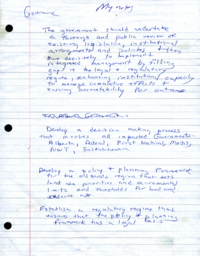 Governance
The government should undertake
a thorough and public review of
existing legislation, institutional
arrangements and policies
then decisively to implement
integrated management by filling
gaps in the legal & regulatory
regime, enhancing institutional capacity
to manage cumulative effects to
ensure
Develop a decision making process
that involves all impacted
Alberta, Federal, First Nations, Metis,
NWT, Saskatchewan
Develop a policy & planning framework
for the oilsands region that sets
land use priorities and environmental
limits and thresholds for land and
Establish a regulatory regime that
ensures that the policy & planning
framework has a legal basis